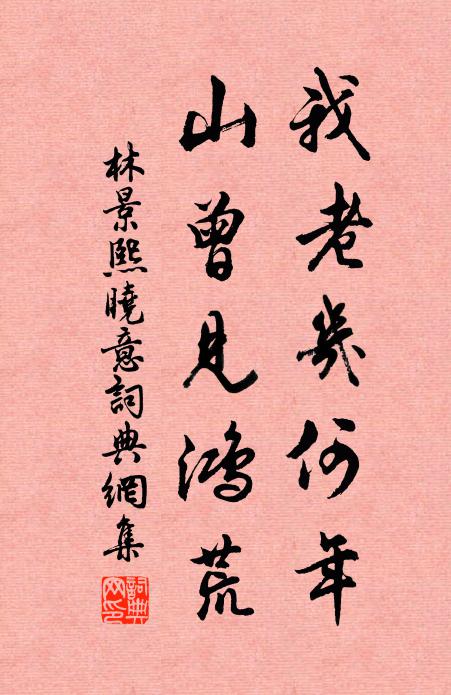 我老幾何年
山曾見鴻荒
林景熙曉意詞典網集
詞典网印